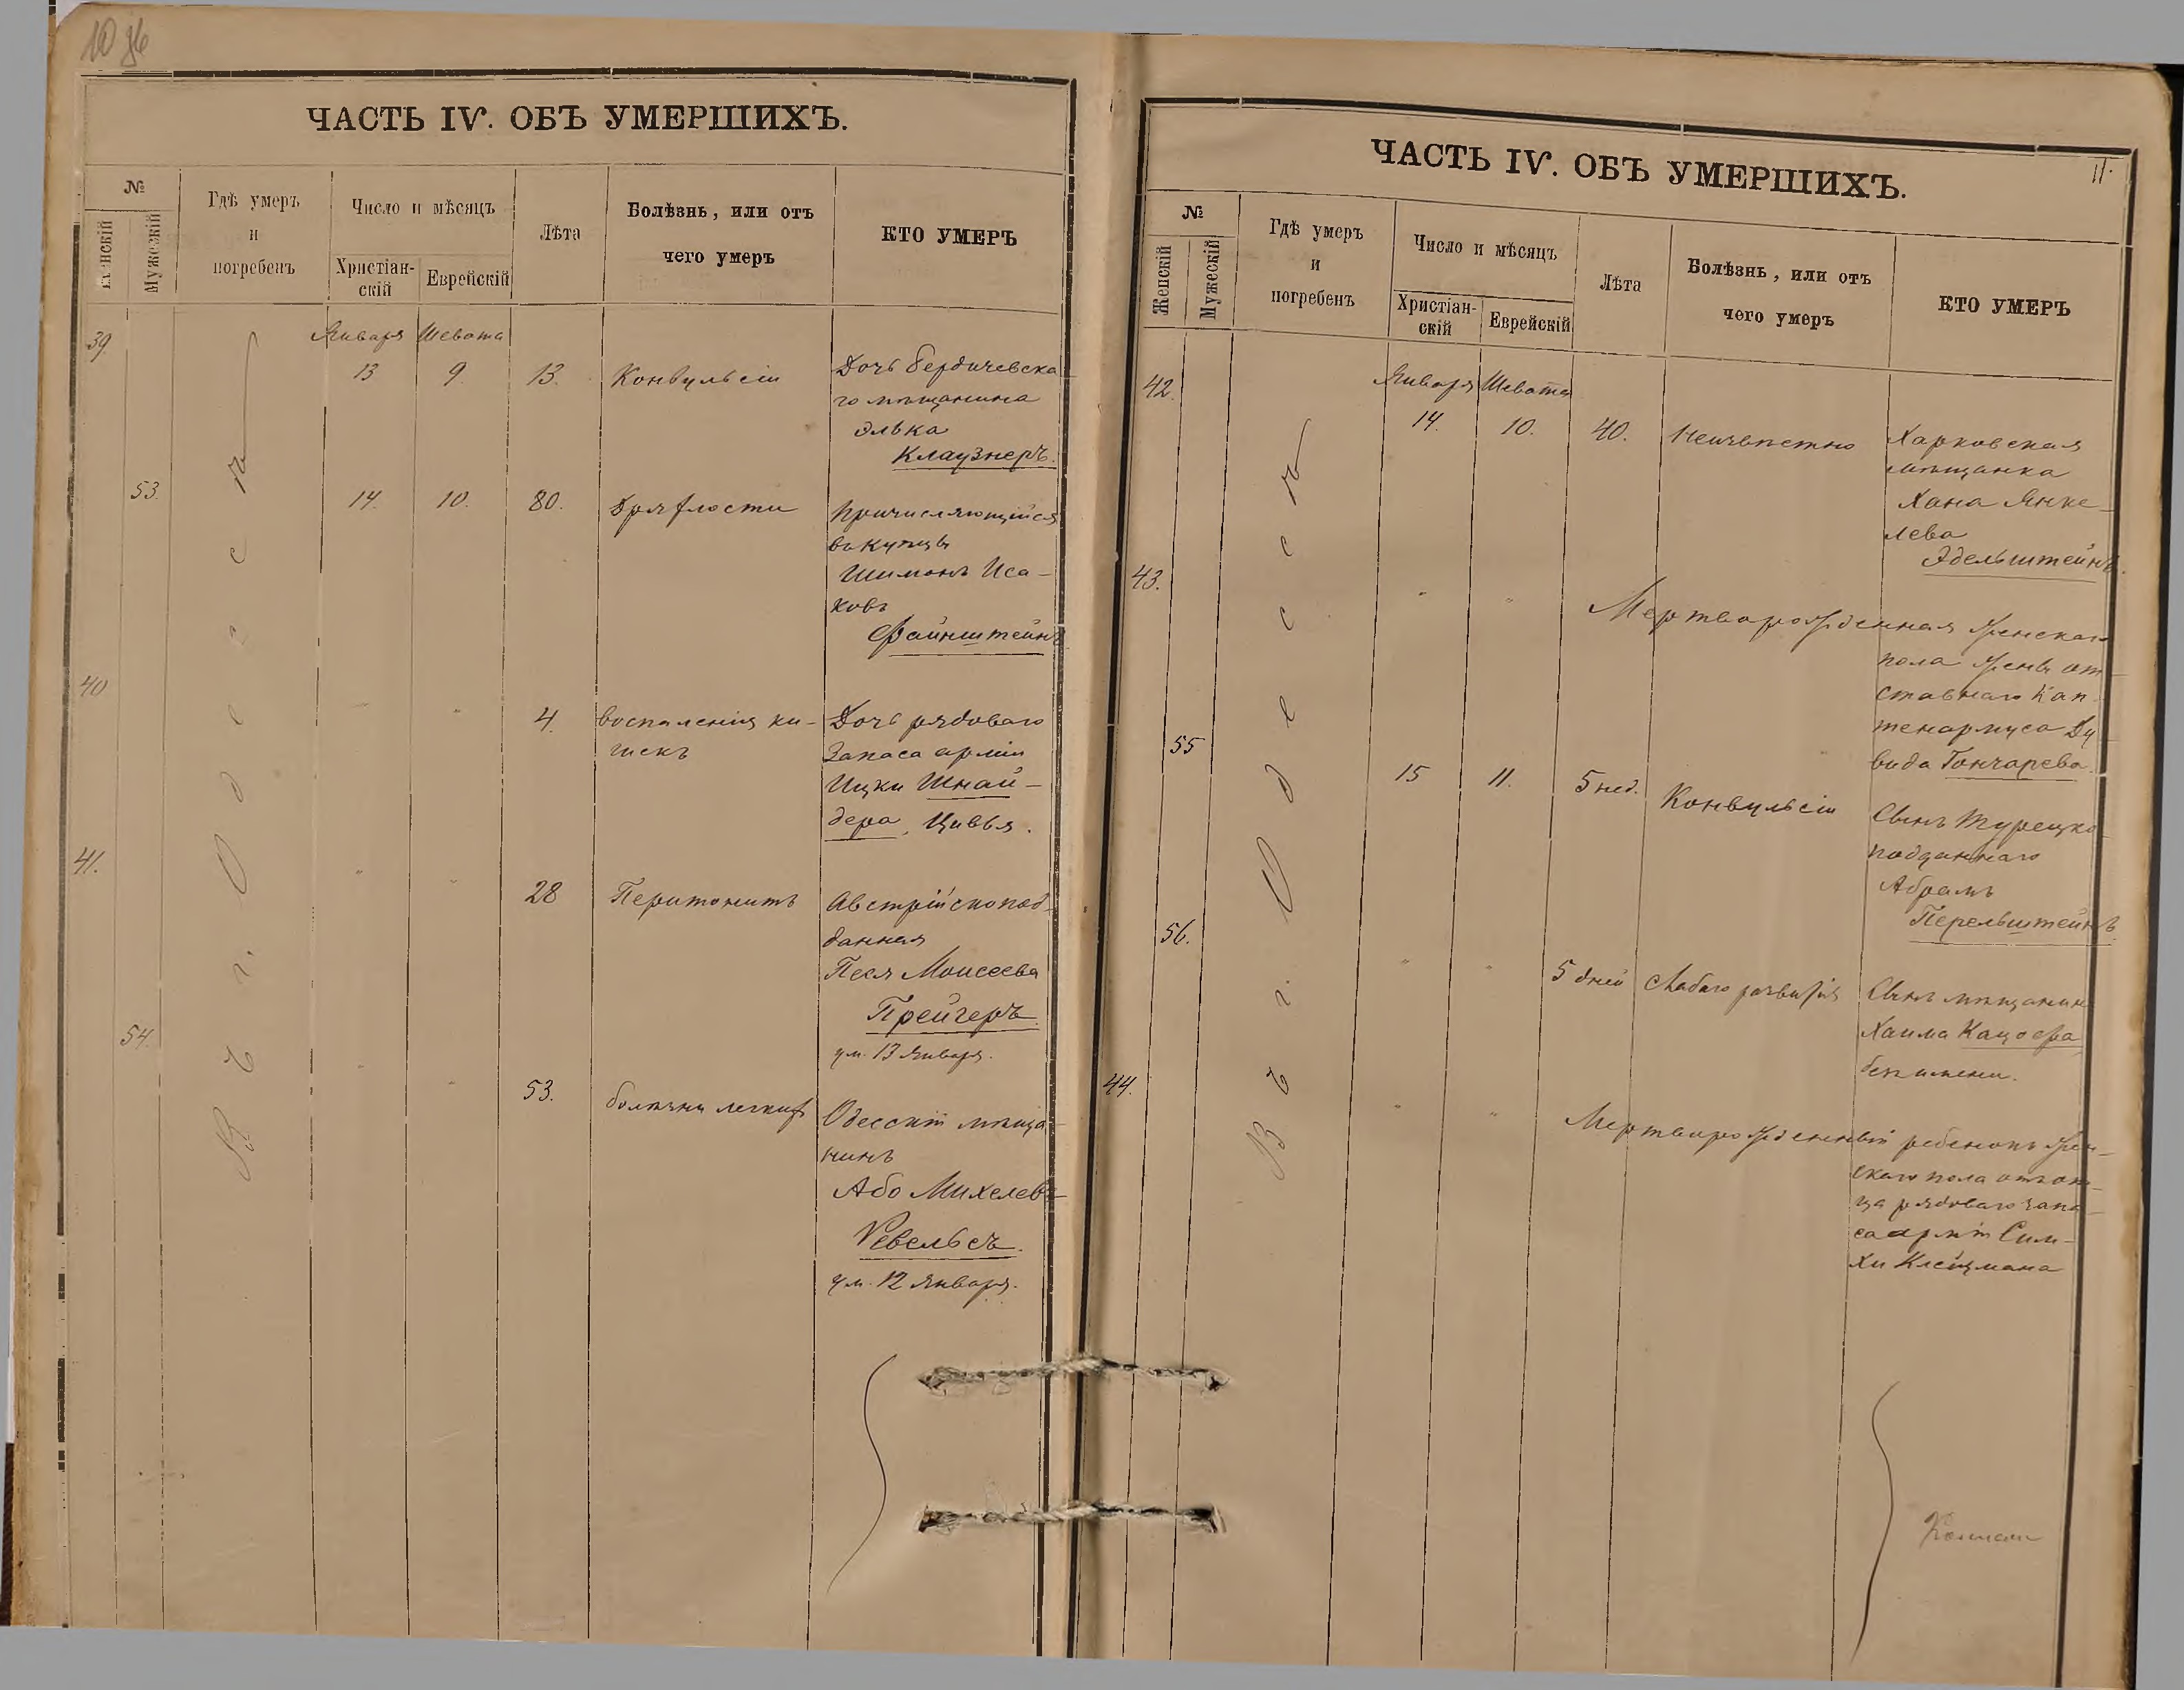 10
ЧАСТЬ IV. ОБЪ УМЕРШИХЪ.
№
Женскій
Мужескій
Гдѣ умеръ
и
погребенъ
Число и мѣсяцъ
Христіан-
скій
Еврейскій
Лѣта
Болѣзнь, или отъ
чего умеръ
КТО УМЕРЪ
Въ г. Одессѣ
Января Шевата
39. 13 9. 13. Конвульсіи Дочь бердичевска
го мѣщанина
Элька
Клаузнеръ.
53. 14. 10. 80. Дряхлости Причисляющійся
въ купцы
Шимонъ Иса-
ковъ
Файнштейнъ
40 " " 4. воспаленія ки- Дочь рядоваго
шекъ запаса арміи
Ицки Шнай-
дера, Цивья.
41. " " 28 Перитонитъ Австрійскопод-
данная
Песя Моисеева
Прейгеръ.
ум. 13 Января.
54. " " 53. болѣзни легкихъ Одесскій мѣща-
нинъ
Або Михелевъ
Ревельсъ.
ум. 12 Января.
11.
ЧАСТЬ IV. ОБЪ УМЕРШИХЪ.
№
Женскій
Мужескій
Гдѣ умеръ
и
погребенъ
Число и мѣсяцъ
Христіан-
скій
Еврейскій
Лѣта
Болѣзнь, или отъ
чего умеръ
КТО УМЕРЪ
Въ г. Одессѣ
Января Шевата
42. 14. 10. 40. Неизвѣстно Харковская
мѣщанка
Хана Янке-
лева
Эдельштейнъ.
43. " " Мертворожденная женскаго
пола жены от-
ставнаго Кап-
тенармуса Ду
вида Гончарева.
55 15 11. 5 нед. Конвульсіи Сынъ Турецко-
подданнаго
Абрамъ
Перельштейнъ.
56. " " 5 дней Слабаго развитія Сынъ мѣщанина
Хаима Кацофа
безъ имени.
44. " " Мертворожденный ребенокъ жен-
скаго пола отъ от-
ца рядоваго запа-
са арміи Сим-
хи Клейцмана